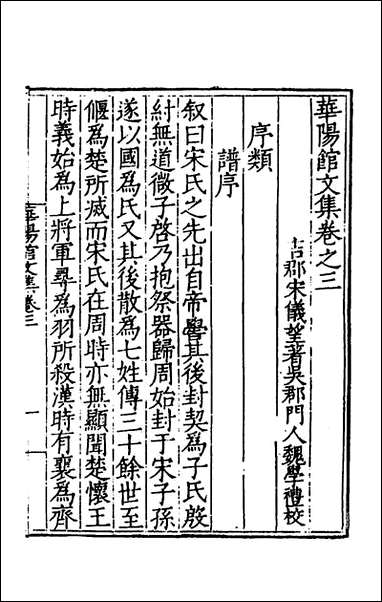 華陽館文集卷之三
吉郡宋儀望著吳郡門人魏學禮校
序類
譜序
叙曰宋氏之先出自帝嚳其後封契為子氏殷
紂無道微子啓乃抱祭器歸周始封于宋子孫
遂以國為氏又其後散為七姓傳三十餘世至
偃為楚所滅而宋氏在周時亦無顯聞楚懷王
時義始為上將軍尋為羽所殺漢時有襄為齊
華陽館文集卷三
一